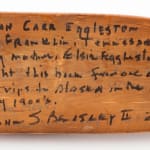 AN CARR EGGLESTON
FRANKLIN, TENNESSEE
MY MOTHER, ELSIE EGGLESTON
HT THIS BACK FROM ONE OF
TRIPS TO ALASKA IN THE
Y 1900'S.
S BEASLEY II